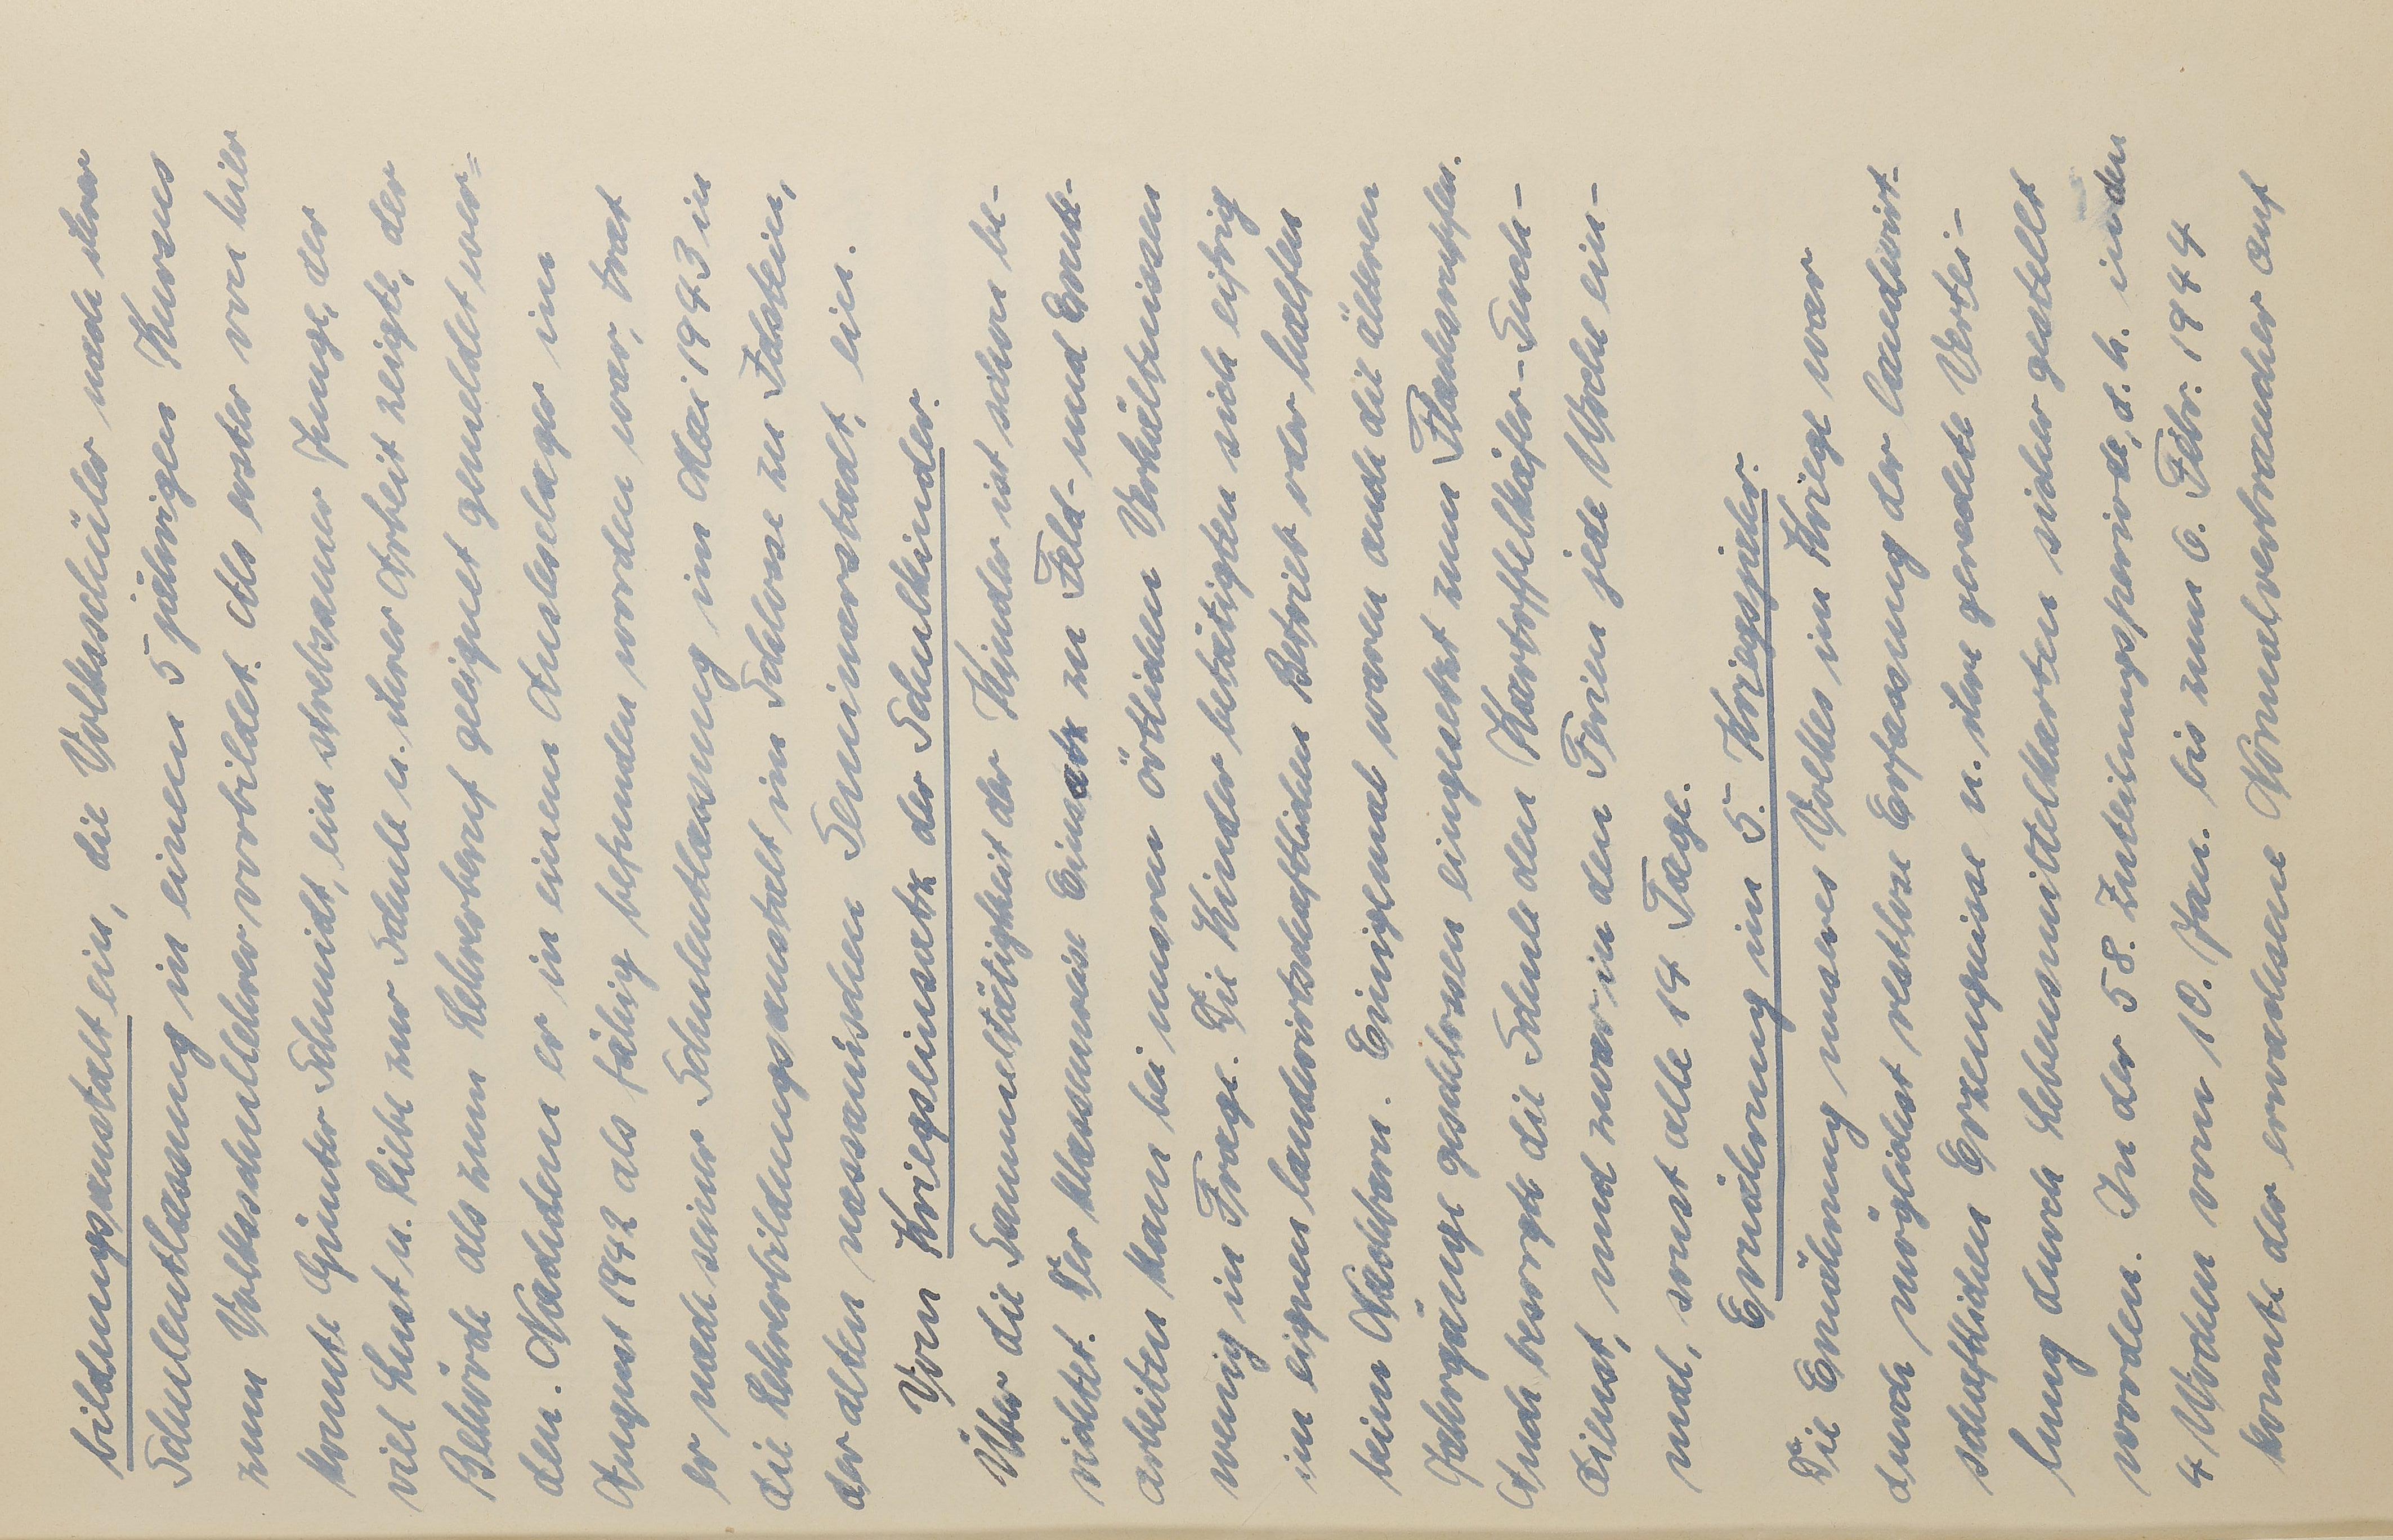 bildungsanstalt ein, die Volksschüler nach ihrer
Schulentlassung in einem 5 jährigen Kursus
zum Volksschullehrer vorbildet. Als erster von hier
konnte Günter Schmidt, ein strebsamer Junge, der
viel Lust u. Liebe zur Schule u. ihrer Arbeit zeigte, der
Behörde als zum Lehrerberuf geeignet gemeldet wer=
den. Nachdem er in einem Ausleselager im
August 1942 als fähig befunden worden war, trat
er nach seiner Schulentlassung im Mai 1943 in
die Lehrerbildungsanstalt im Schlosse zu Idstein,
der alten nassauischen Seminarstadt, ein.
Vom Kriegseinsatz der Schulkinder.
Über die Sammeltätigkeit der Kinder ist schon be-
richtet. Der klassenweise Einsatz zu Feld- und Ernte-
arbeiten kam bei unsren örtlichen Verhältnissen
wenig in Frage. Die Kinder betätigten sich eifrig
im eignen landwirtschaftlichen Betriebe oder halfen
beim Nachbarn. Einigemal waren auch die älteren
Jahrgänge geschlossen eingesetzt zum Flachsrupfen.
Auch besorgte die Schule den Kartoffelkäfer-Such-
dienst, und zwar in den Ferien jede Woche ein-
mal, sonst alle 14 Tage.
Ernährung im 5. Kriegsjahr.
Die Ernährung unseres Volkes im Kriege war
durch möglichst restlose Erfassung der landwirt-
schaftlichen Erzeugnisse u. ihre gerechte Vertei-
lung durch Lebensmittelkarten sicher gestellt
worden. In der 58. Zuteilungsperiode, d. h. in den
4 Wochen vom 10. Jan. bis zum 6. Febr. 1944
konnte der erwachsene Normalverbraucher auf